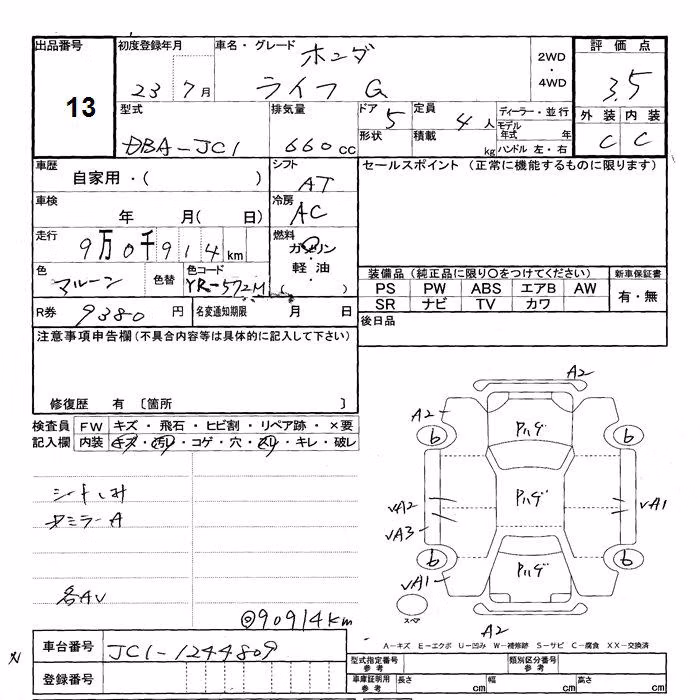 出品番号 初度登録年月 車名・グレード ホンダ 2WD・4WD 評価点
13 23 7月 ライフ G 3.5
型式 排気量 ドア 5 定員 4人 ディーラー・並行 外装 内装
DBA-JC1 660cc 形状 積載 kg モデル年式 年 C C
ハンドル 左・右
車歴 シフト セールスポイント (正常に機能するものに限ります)
自家用・( ) AT
車検 冷房
年 月( 日) AC
走行 燃料
9万0千914km ガソリン・軽油・( )
色 色替 色コード 装備品(純正品に限り○をつけてください) 新車保証書
マルーン YR-572M PS PW ABS エアB AW 有・無
SR ナビ TV カワ
R券 9380円 名変通知期限 月 日 後日品
注意事項申告欄(不具合内容等は具体的に記入して下さい)
修復歴 有 〔箇所 〕
検査員 FW キズ・飛石・ヒビ割・リペア跡・×要
記入欄 内装 キズ・汚れ・コゲ・穴・スレ・キレ・破レ
A2
A2
6 6
Pハゲ
シートしみ
ミラーA
Pハゲ
vA2 vA1
vA3
6 6
Pハゲ
vA1
スペア
各AV
◎90914km
A2
A-キズ E-エクボ U-凹み W-補修跡 S-サビ C-腐食 XX-交換済
車台番号 JC1-1244809
登録番号
型式指定番号 参考 類別区分番号 参考
車庫証明用 参考 長さ cm 幅 cm 高さ cm